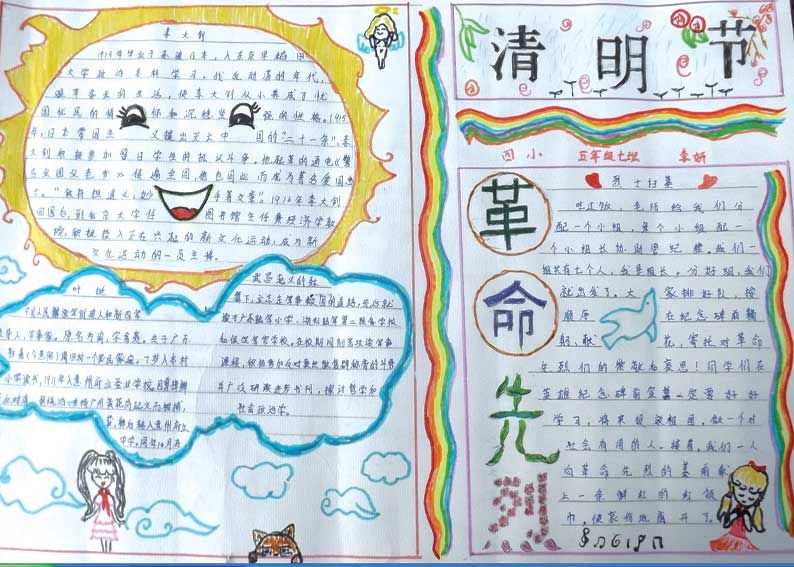 李大钊
1913年毕业于
入东京早稻田
大学政治本科学习。
年代,
的生活,使李大钊从小养成了忧
国忧民的情 怀和沉稳坚 强的性格。1915
年,日本帝国主 义提出灭亡中 国的“二十一条”,李
大钊积极参加留日学生的抗议斗争。他起草的通电《警
告全国父老书》传遍全国,他也因此而成为著名爱国志
士。“铁肩担道义,妙 手著文章。”1916年李大钊
回国后,到北京大学任 图书馆主任兼经济学教
授,积极投入正在兴起的新文化运动,成为新
文化运动的一员主将。
叶挺
中国人民解放军创建人和新四军
军事家。原名为询,字希夷,出于广东
一个农民家庭。7岁入本村
小学读书,1911年入惠州府立蚕业学校。
黄花岗起义而被捕,
转入惠州府立
中学。同年10月在
武昌起义的鼓
舞下,立志走军事救国的道路,先后就
读于广东陆军小学、湖北陆军第二预备学校
和保定军官学校。在校期间刻苦攻读军事
课程,积极参加反对袁世凯复辟称帝的斗争
并广泛研读进步书刊,探讨哲学和
社会政治学。
清明节
四小 五年级七班 李妍
革命先烈
烈士扫墓
吃过饭,老师给我们分
配一个小组,每个小组配一
个小组长协助管纪律。我们一
组共有七个人,我是组长,分好组,我们
就出发了。大 家排好队,按
顺序 在纪念碑前鞠
躬、献 花,寄托对革命
先烈们的崇敬和哀思!同学们在
英雄纪念碑前宣誓一定要好好
学习,将来报效祖国,做一个对
社会有用的人。接着,我们一人
向革命先烈的墓前献
上一条鲜红的红领
巾,便哀伤地离开了。